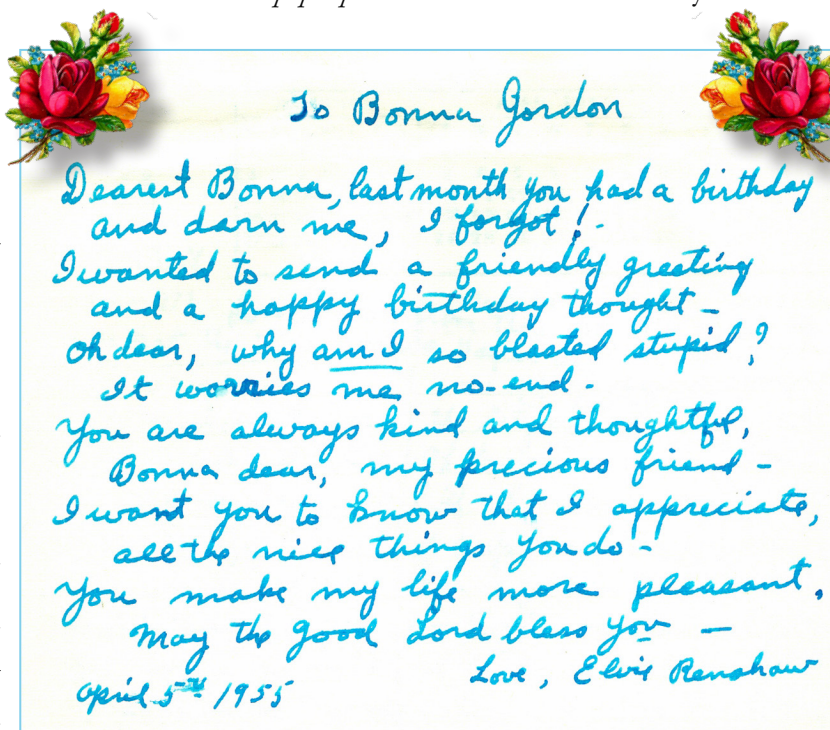 To Bonna Gordon
Dearest Bonna, last month you had a birthday
and darn me, I forgot!
I wanted to send a friendly greeting
and a happy birthday thought -
Oh dear, why am I so blasted stupid?
It worries me no-end.
You are always kind and thoughtful,
Bonna dear, my precious friend -
I want you to know that I appreciate,
all the nice things you do -
You make my life more pleasant,
May the good Lord bless you -
Love, Elvie Renshaw
April 5th 1955